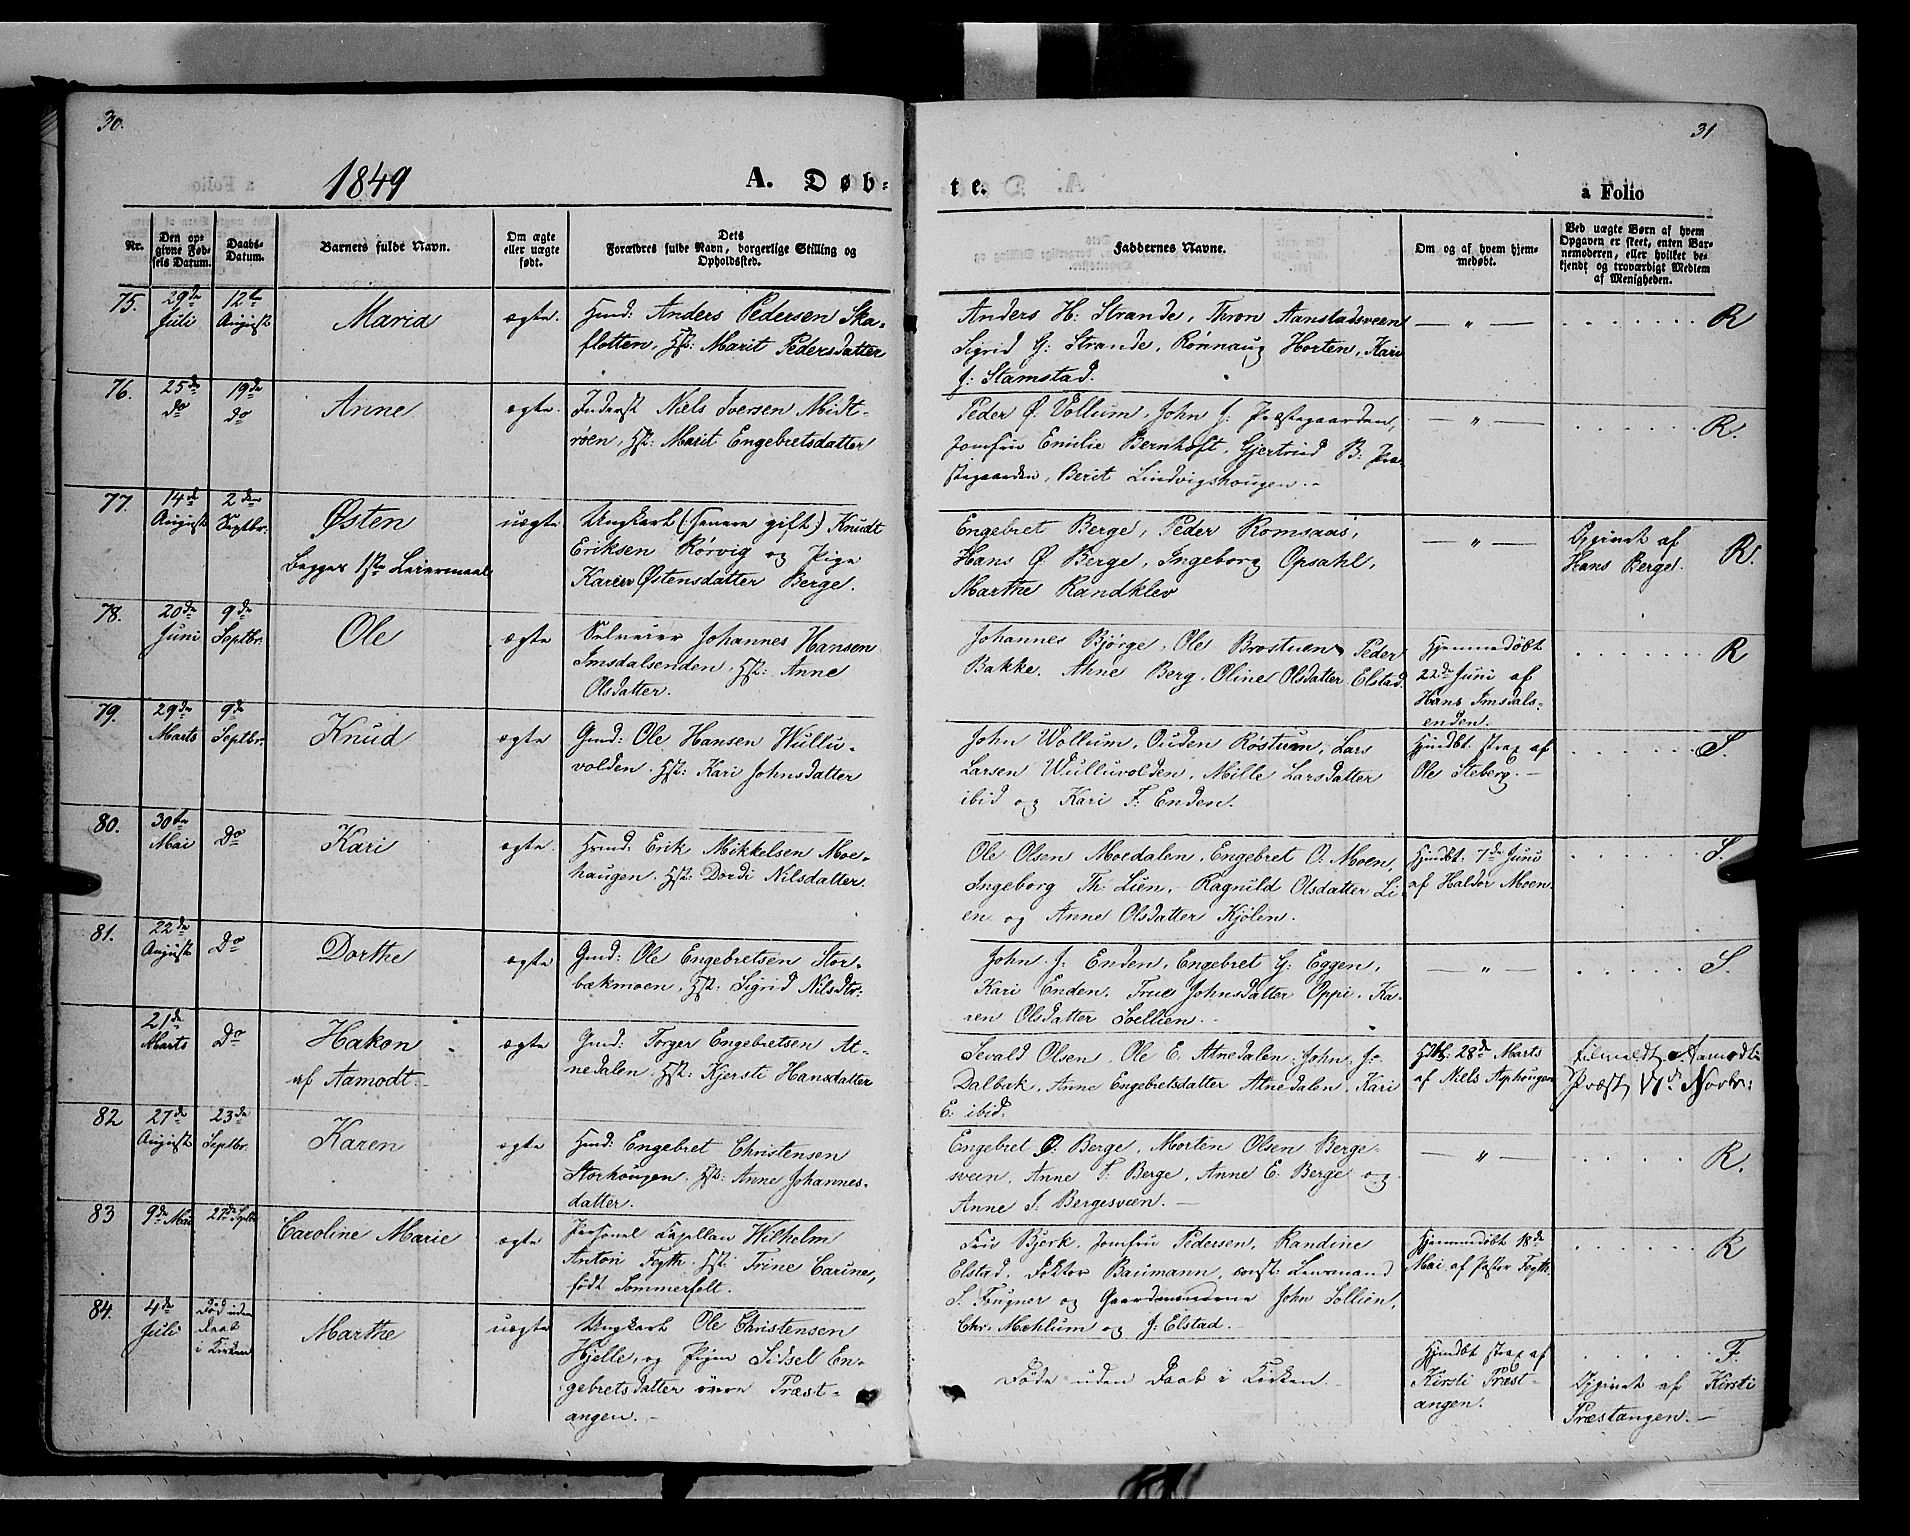 30.
31
1849
A. Døb-
te.
a Folio
Nr.
Den op-
givne Fød-
sels Datum.
Daabs-
Datum.
Barnets fulde Navn.
Om ægte
eller uægte
født.
Dets
Forældres fulde Navn, borgerlige Stilling og
Opholdssted.
Faddernes Navne.
Om og af hvem hjem-
medøbt.
Ved uægte Børn af hvem
Opgaven er skeet, enten Bar-
nemoderen, eller hvilket be-
kjendt og troværdigt Medlem
af Menigheden.
75.
29de
Juli
12te
August
Maria
ægte.
Huusmd: Anders Pedersen Ska-
flotten. Hst: Marit Pedersdatter
Anders H: Strande, Thron Aanstadsveen
Sigrid G: Strande, Rønnaug Horten, Kari
J: Stamstad.
— " —
R
76.
25de
do
19de
do
Anne
ægte
Inderst Niels Iversen Midt-
røen, Hst: Marit Engebretsdatter
Peder Ø. Vollum, John J: Præstegaarden,
Jomfru Emilie Bernhoft, Gjertrud B: Præ-
stegaarden, Berit Lindvigshougen.
— " —
R.
77.
14de
August
2den
Septbr.
Østen
Begges 1ste Leiermaal
uægte
Ungkarl (senere gift) Knudt
Eriksen Rørvig og Pige
Karen Østensdatter Berge.
Engebret Berge, Peder Romsaas,
Hans Ø. Berge, Ingeborg Opsahl,
Marthe Randklev
— " —
Opgivet af
Hans Berge.
R.
78.
20de
Juni
9de
Septbr.
Ole
ægte
Selveier Johannes Hansen
Imsdalsenden. Hst: Anne
Olsdatter.
Johannes Bjørge, Ole Brostuen, Peder
Bakke, Ahne Berg, Oline Olsdatter Elstad.
Hjemmedøbt
22de Juni af
Hans Imsdals-
enden.
R
79.
29de
Marts
9de
Septbr.
Knud
ægte
Gmd: Ole Hansen Wullu-
volden. Hst: Kari Johnsdatter
John Wollum, Ouden Røstum, Lars
Larsen Wulluvolden, Mille Larsdatter
ibid og Kari T. Enden.
Hjmdbt. strax af
Ole Steberg.
S.
80.
30te
Mai
Do
Kari
ægte.
Hmd: Erik Mikkelsen Moe-
haugen. Hst: Dordi Nilsdatter.
Ole Olsen Moedalen, Engebret O. Moen,
Ingeborg Th: Lien, Ragnild Olsdatter Li-
en og Anne Olsdatter Kjølen.
Hjmdbt: 7de Juni
af Haldor Moen
S.
81.
22de
August
Do
Dorthe
ægte
Gmd: Ole Engebretsen Stor-
bækmoen. Hst: Sigrid Nilsdtr:
John J. Enden, Engebret G: Eggen,
Kari Enden, True Johnsdatter Oppi, Ka-
ren Olsdatter Sollien.
— " —
S.
21de
Marts
Do
Hakon
af Aamodt.
ægte
Gmd: Torger Engebretsen At-
nedalen. Hst: Kjersti Hansdatter
Sevald Olsen, Ole E. Atnedalen, John J:
Dalbek, Anne Engebretsdatter Atnedalen, Kari
E: ibid.
Hdbt: 28de Marts
af Niels Asphougen
Tilmeldt Aamodts
Præst 17de Novbr:
82
27de
August
23de
Septbr.
Karen
ægte
Hmd: Engebret Christensen
Storhougen. Hst: Anne Johannes-
datter.
Engebret O. Berge, Morten Olsen Berge-
sveen, Anne T. Berge, Anne E. Berge og
Anne S. Bergesveen.
— " —
R.
83
9de Mai
27de Septbr
Caroline Marie
ægte
Personel Capellan Wilhelm
Anton Fegth. Hst: Trine Carine,
født Sommerfelt.
Fru Bjerk, Jomfru Pedersen, Randine
Elstad, Doktor Baumann, const: Lensmand
S. Fougner og Gaardmændene John Sollien,
Chr. Mehlum og J: Elstad.
Hjemmedøbt 18de
Mai af Pastor Fegth.
R
84.
4de
Juli
Død uden
Daab
i Kirken
Marthe
uægte
Ungkarl Ole Christensen
Hjelle, og Pigen Sidsel En-
gebretsdatter øvre Præst-
angen.
Døde uden Daab i Kirken
Hjmdbt strax af
Kirsti Præst-
angen.
F.
Opgivet af Kirsti
Præstangen.